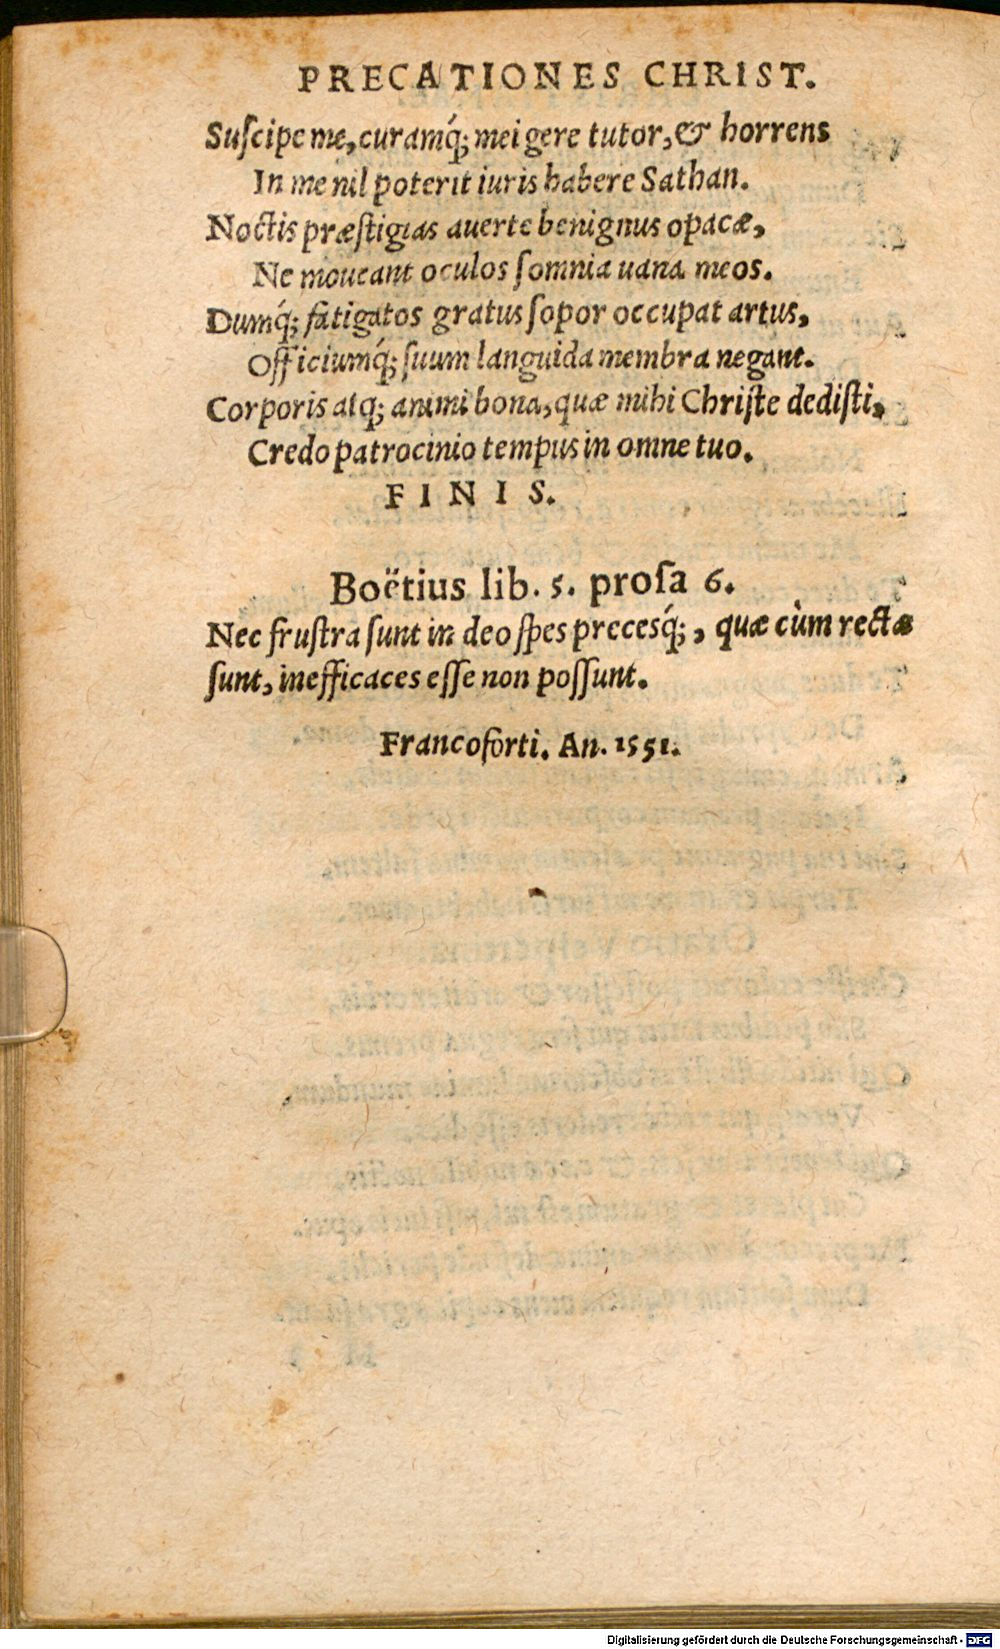 PRECATIONES CHRIST.
Suſcipe me, curamq́; mei gere tutor, & horrens
In me nil poterit iuris habere Sathan.
Noctis præſtigias auerte benignus opacæ,
Ne moueant oculos ſomnia uana meos.
Dumq́; fatigatos gratus ſopor occupat artus,
Officiumq́; ſuum languida membra negant.
Corporis atq; animi bona, quæ mihi Chriſte dediſti,
Credo patrocinio tempus in omne tuo.
FINIS.
Boëtius lib. 5. proſa 6.
Nec fruſtra ſunt in deo ſpes precesq́; , quæ cùm rectæ
ſunt, inefficaces eſſe non poſſunt.
Francoforti. An. 1551.
Digitalisierung gefördert durch die Deutsche Forschungsgemeinschaft - DFG